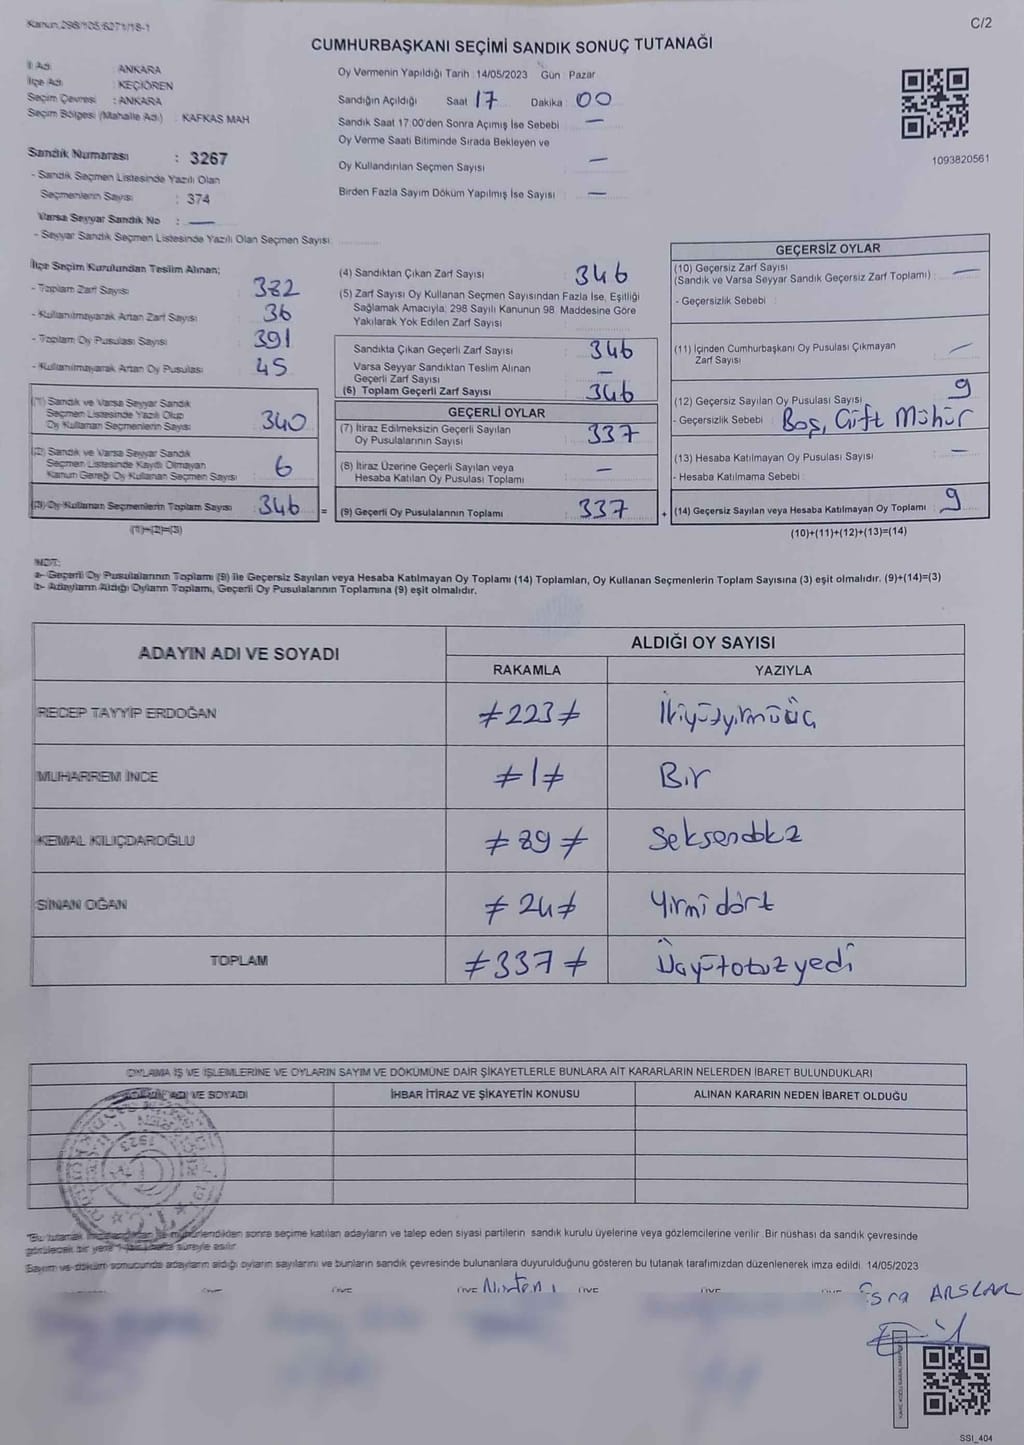 Kanun:298/105;6271/18-1
C/2
CUMHURBAŞKANI SEÇİMİ SANDIK SONUÇ TUTANAĞI
İl Adı : ANKARA
İlçe Adı : KEÇİÖREN
Seçim Çevresi : ANKARA
Seçim Bölgesi (Mahalle Adı) : KAFKAS MAH
Sandık Numarası : 3267
- Sandık Seçmen Listesinde Yazılı Olan
Seçmenlerin Sayısı : 374
Varsa Seyyar Sandık No : —
- Seyyar Sandık Seçmen Listesinde Yazılı Olan Seçmen Sayısı:
Oy Vermenin Yapıldığı Tarih : 14/05/2023 Gün : Pazar
Sandığın Açıldığı Saat 17 Dakika : 00
Sandık Saat 17.00'den Sonra Açımış İse Sebebi : —
Oy Verme Saati Bitiminde Sırada Bekleyen ve
Oy Kullandırılan Seçmen Sayısı : —
Birden Fazla Sayım Döküm Yapılmış İse Sayısı : —
1093820561
İlçe Seçim Kurulundan Teslim Alınan;
- Toplam Zarf Sayısı : 382
- Kullanılmayarak Artan Zarf Sayısı : 36
- Toplam Oy Pusulası Sayısı : 391
- Kullanılmayarak Artan Oy Pusulası : 45
(1) Sandık ve Varsa Seyyar Sandık
Seçmen Listesinde Yazılı Olup
Oy Kullanan Seçmenlerin Sayısı : 340
(2) Sandık ve Varsa Seyyar Sandık
Seçmen Listesinde Kayıtlı Olmayan
Kanun Gereği Oy Kullanan Seçmen Sayısı : 6
(3) Oy Kullanan Seçmenlerin Toplam Sayısı : 346 =
(1)+(2)=(3)
(4) Sandıktan Çıkan Zarf Sayısı : 346
(5) Zarf Sayısı Oy Kullanan Seçmen Sayısından Fazla İse, Eşitliği
Sağlamak Amacıyla; 298 Sayılı Kanunun 98. Maddesine Göre
Yakılarak Yok Edilen Zarf Sayısı :
Sandıkta Çıkan Geçerli Zarf Sayısı : 346
Varsa Seyyar Sandıktan Teslim Alınan
Geçerli Zarf Sayısı : —
(6) Toplam Geçerli Zarf Sayısı : 346
GEÇERLİ OYLAR
(7) İtiraz Edilmeksizin Geçerli Sayılan
Oy Pusulalarının Sayısı : 337
(8) İtiraz Üzerine Geçerli Sayılan veya
Hesaba Katılan Oy Pusulası Toplamı : —
(9) Geçerli Oy Pusulalarının Toplamı : 337 +
GEÇERSİZ OYLAR
(10) Geçersiz Zarf Sayısı
(Sandık ve Varsa Seyyar Sandık Geçersiz Zarf Toplamı) : —
- Geçersizlik Sebebi :
(11) İçinden Cumhurbaşkanı Oy Pusulası Çıkmayan
Zarf Sayısı : —
(12) Geçersiz Sayılan Oy Pusulası Sayısı : 9
- Geçersizlik Sebebi : Boş, Çift Mühür
(13) Hesaba Katılmayan Oy Pusulası Sayısı : —
- Hesaba Katılmama Sebebi :
(14) Geçersiz Sayılan veya Hesaba Katılmayan Oy Toplamı : 9
(10)+(11)+(12)+(13)=(14)
NOT:
a- Geçerli Oy Pusulalarının Toplamı (9) ile Geçersiz Sayılan veya Hesaba Katılmayan Oy Toplamı (14) Toplamları, Oy Kullanan Seçmenlerin Toplam Sayısına (3) eşit olmalıdır. (9)+(14)=(3)
b- Adayların Aldığı Oyların Toplamı, Geçerli Oy Pusulalarının Toplamına (9) eşit olmalıdır.
ADAYIN ADI VE SOYADI
ALDIĞI OY SAYISI
RAKAMLA YAZIYLA
RECEP TAYYİP ERDOĞAN ≠223≠ İkiyüzyirmiüç
MUHARREM İNCE ≠1≠ Bir
KEMAL KILIÇDAROĞLU ≠89≠ Seksendokz
SİNAN OĞAN ≠24≠ Yirmi dört
TOPLAM ≠337≠ Üçyüzotuzyedi
OYLAMA İŞ VE İŞLEMLERİNE VE OYLARIN SAYIM VE DÖKÜMÜNE DAİR ŞİKAYETLERLE BUNLARA AİT KARARLARIN NELERDEN İBARET BULUNDUKLARI
ADI VE SOYADI
İHBAR İTİRAZ VE ŞİKAYETİN KONUSU
ALINAN KARARIN NEDEN İBARET OLDUĞU
1923
T.C.
"Bu tutanak mühürlendikten sonra seçime katılan adayların ve talep eden siyasi partilerin sandık kurulu üyelerine veya gözlemcilerine verilir. Bir nüshası da sandık çevresinde
görülecek bir yere 1 hafta süreyle asılır.
Sayım ve döküm sonucunda adayların aldığı oyların sayılarını ve bunların sandık çevresinde bulunanlara duyurulduğunu gösteren bu tutanak tarafımızdan düzenlenerek imza edildi. 14/05/2023
Esra ARSLAN
SSI_404